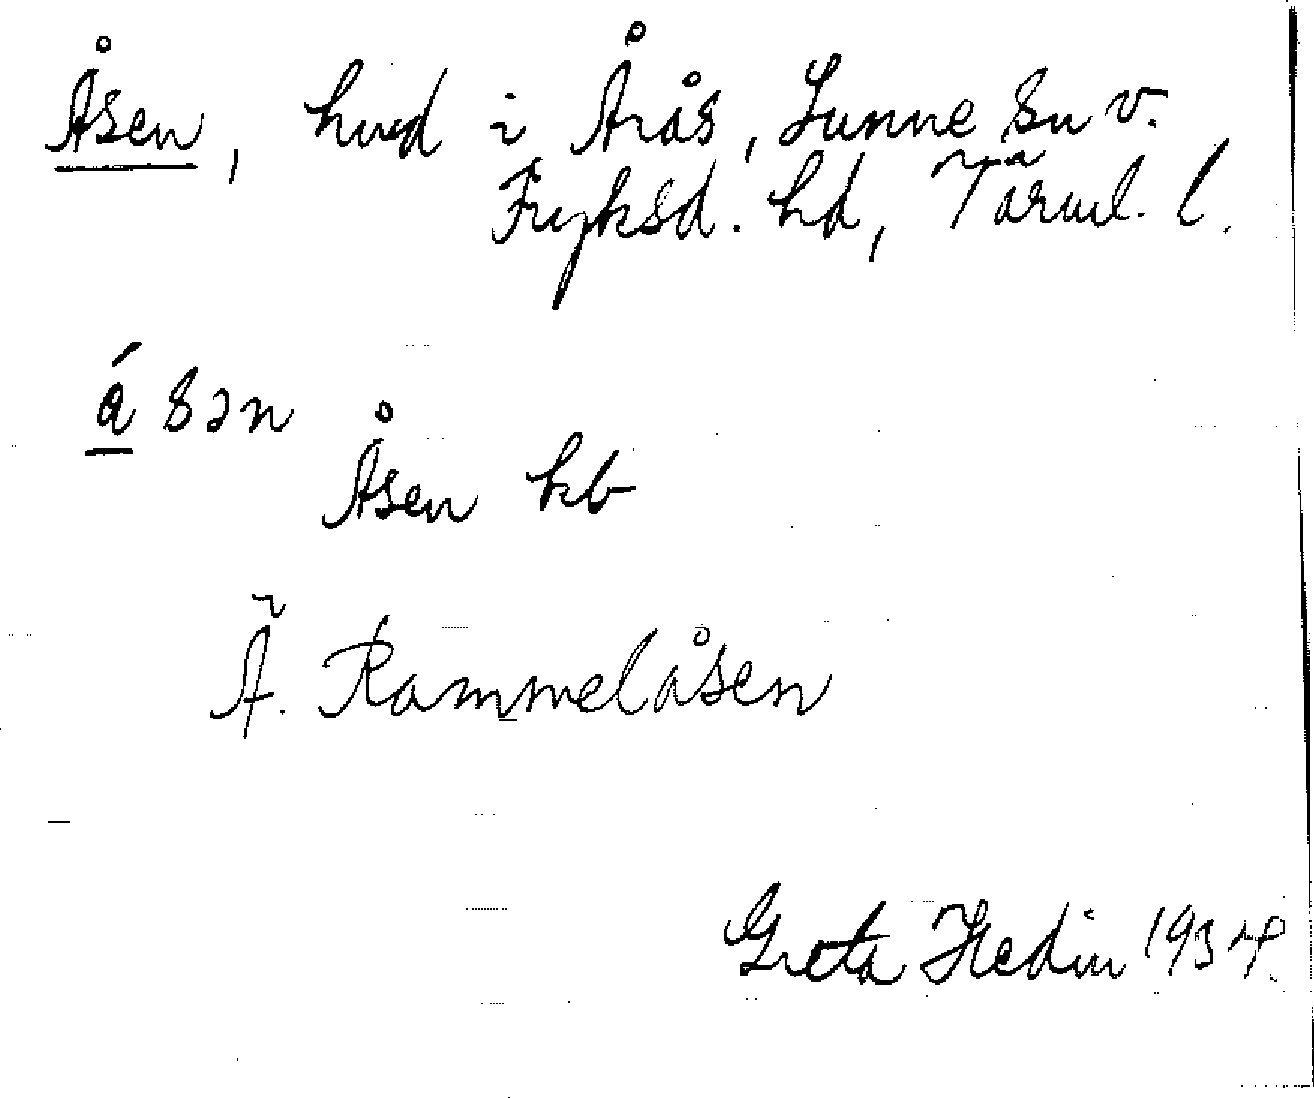 Åsen, hvd i Årås, Sunne sn v.
Fryksd. hd, Värml. l.
á sən
Åsen kb
Ä. Rammelåsen
Greta Hedin 1934.